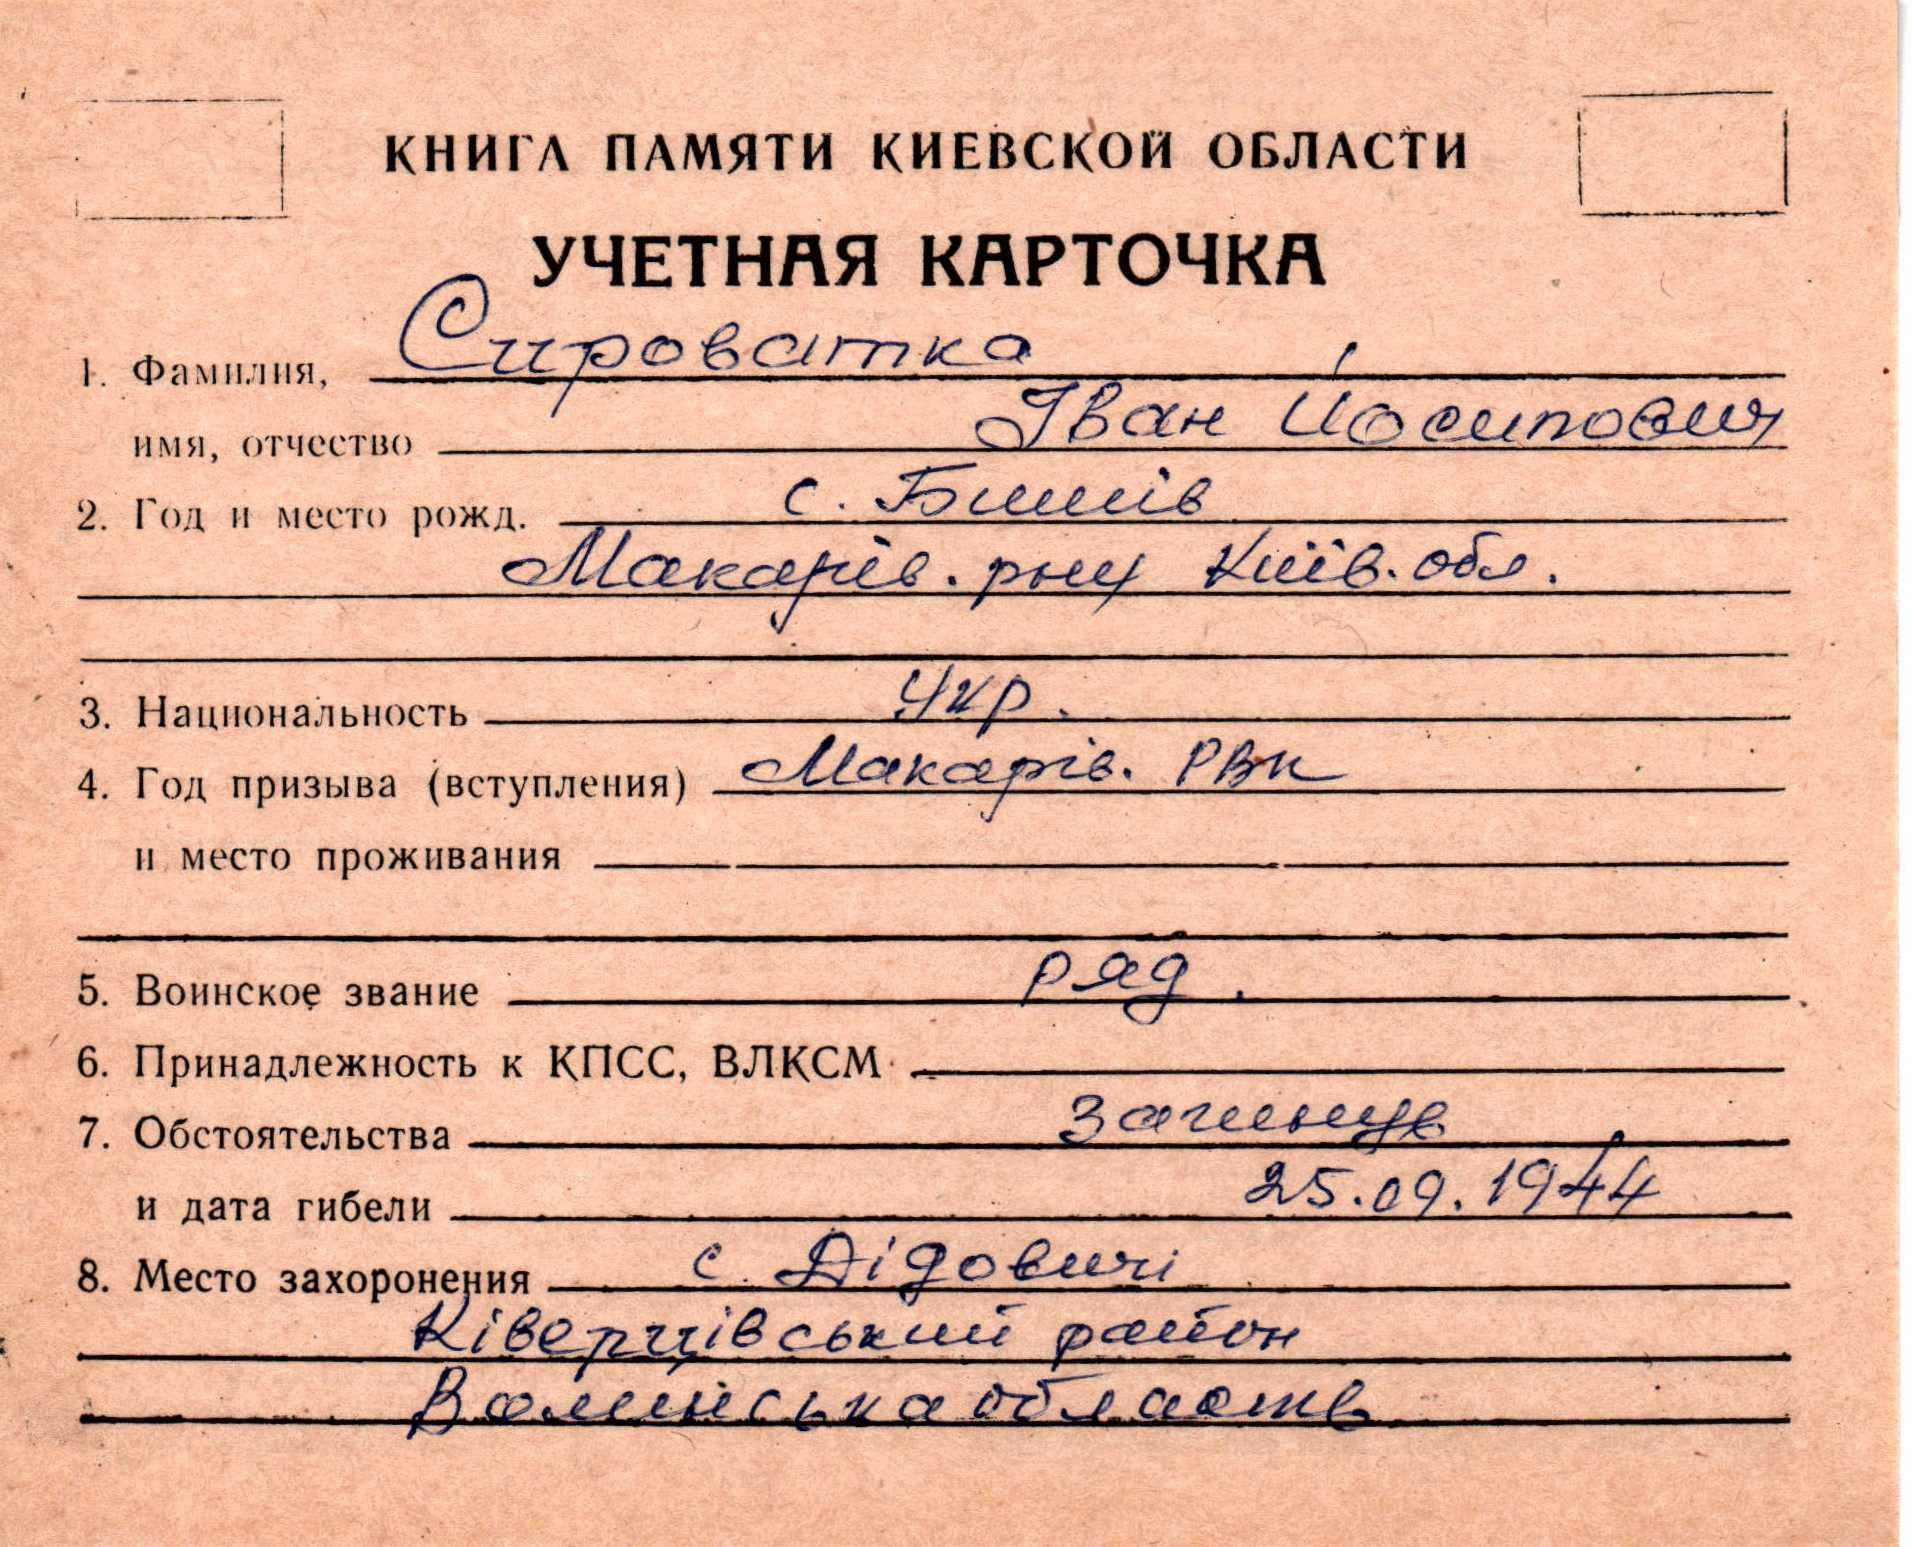 КНИГА ПАМЯТИ КИЕВСКОЙ ОБЛАСТИ
УЧЕТНАЯ КАРТОЧКА
1. Фамилия, Сироватка
имя, отчество Іван Йосипович
2. Год и место рожд. с. Бишів
Макарів. р-ну Київ. обл.
3. Национальность Укр.
4. Год призыва (вступления) Макарів. РВК
и место проживания
5. Воинское звание ряд.
6. Принадлежность к КПСС, ВЛКСМ
7. Обстоятельства загинув
и дата гибели 25.09.1944
8. Место захоронения с. Дідовичі
Ківерцівський район
Волинська область